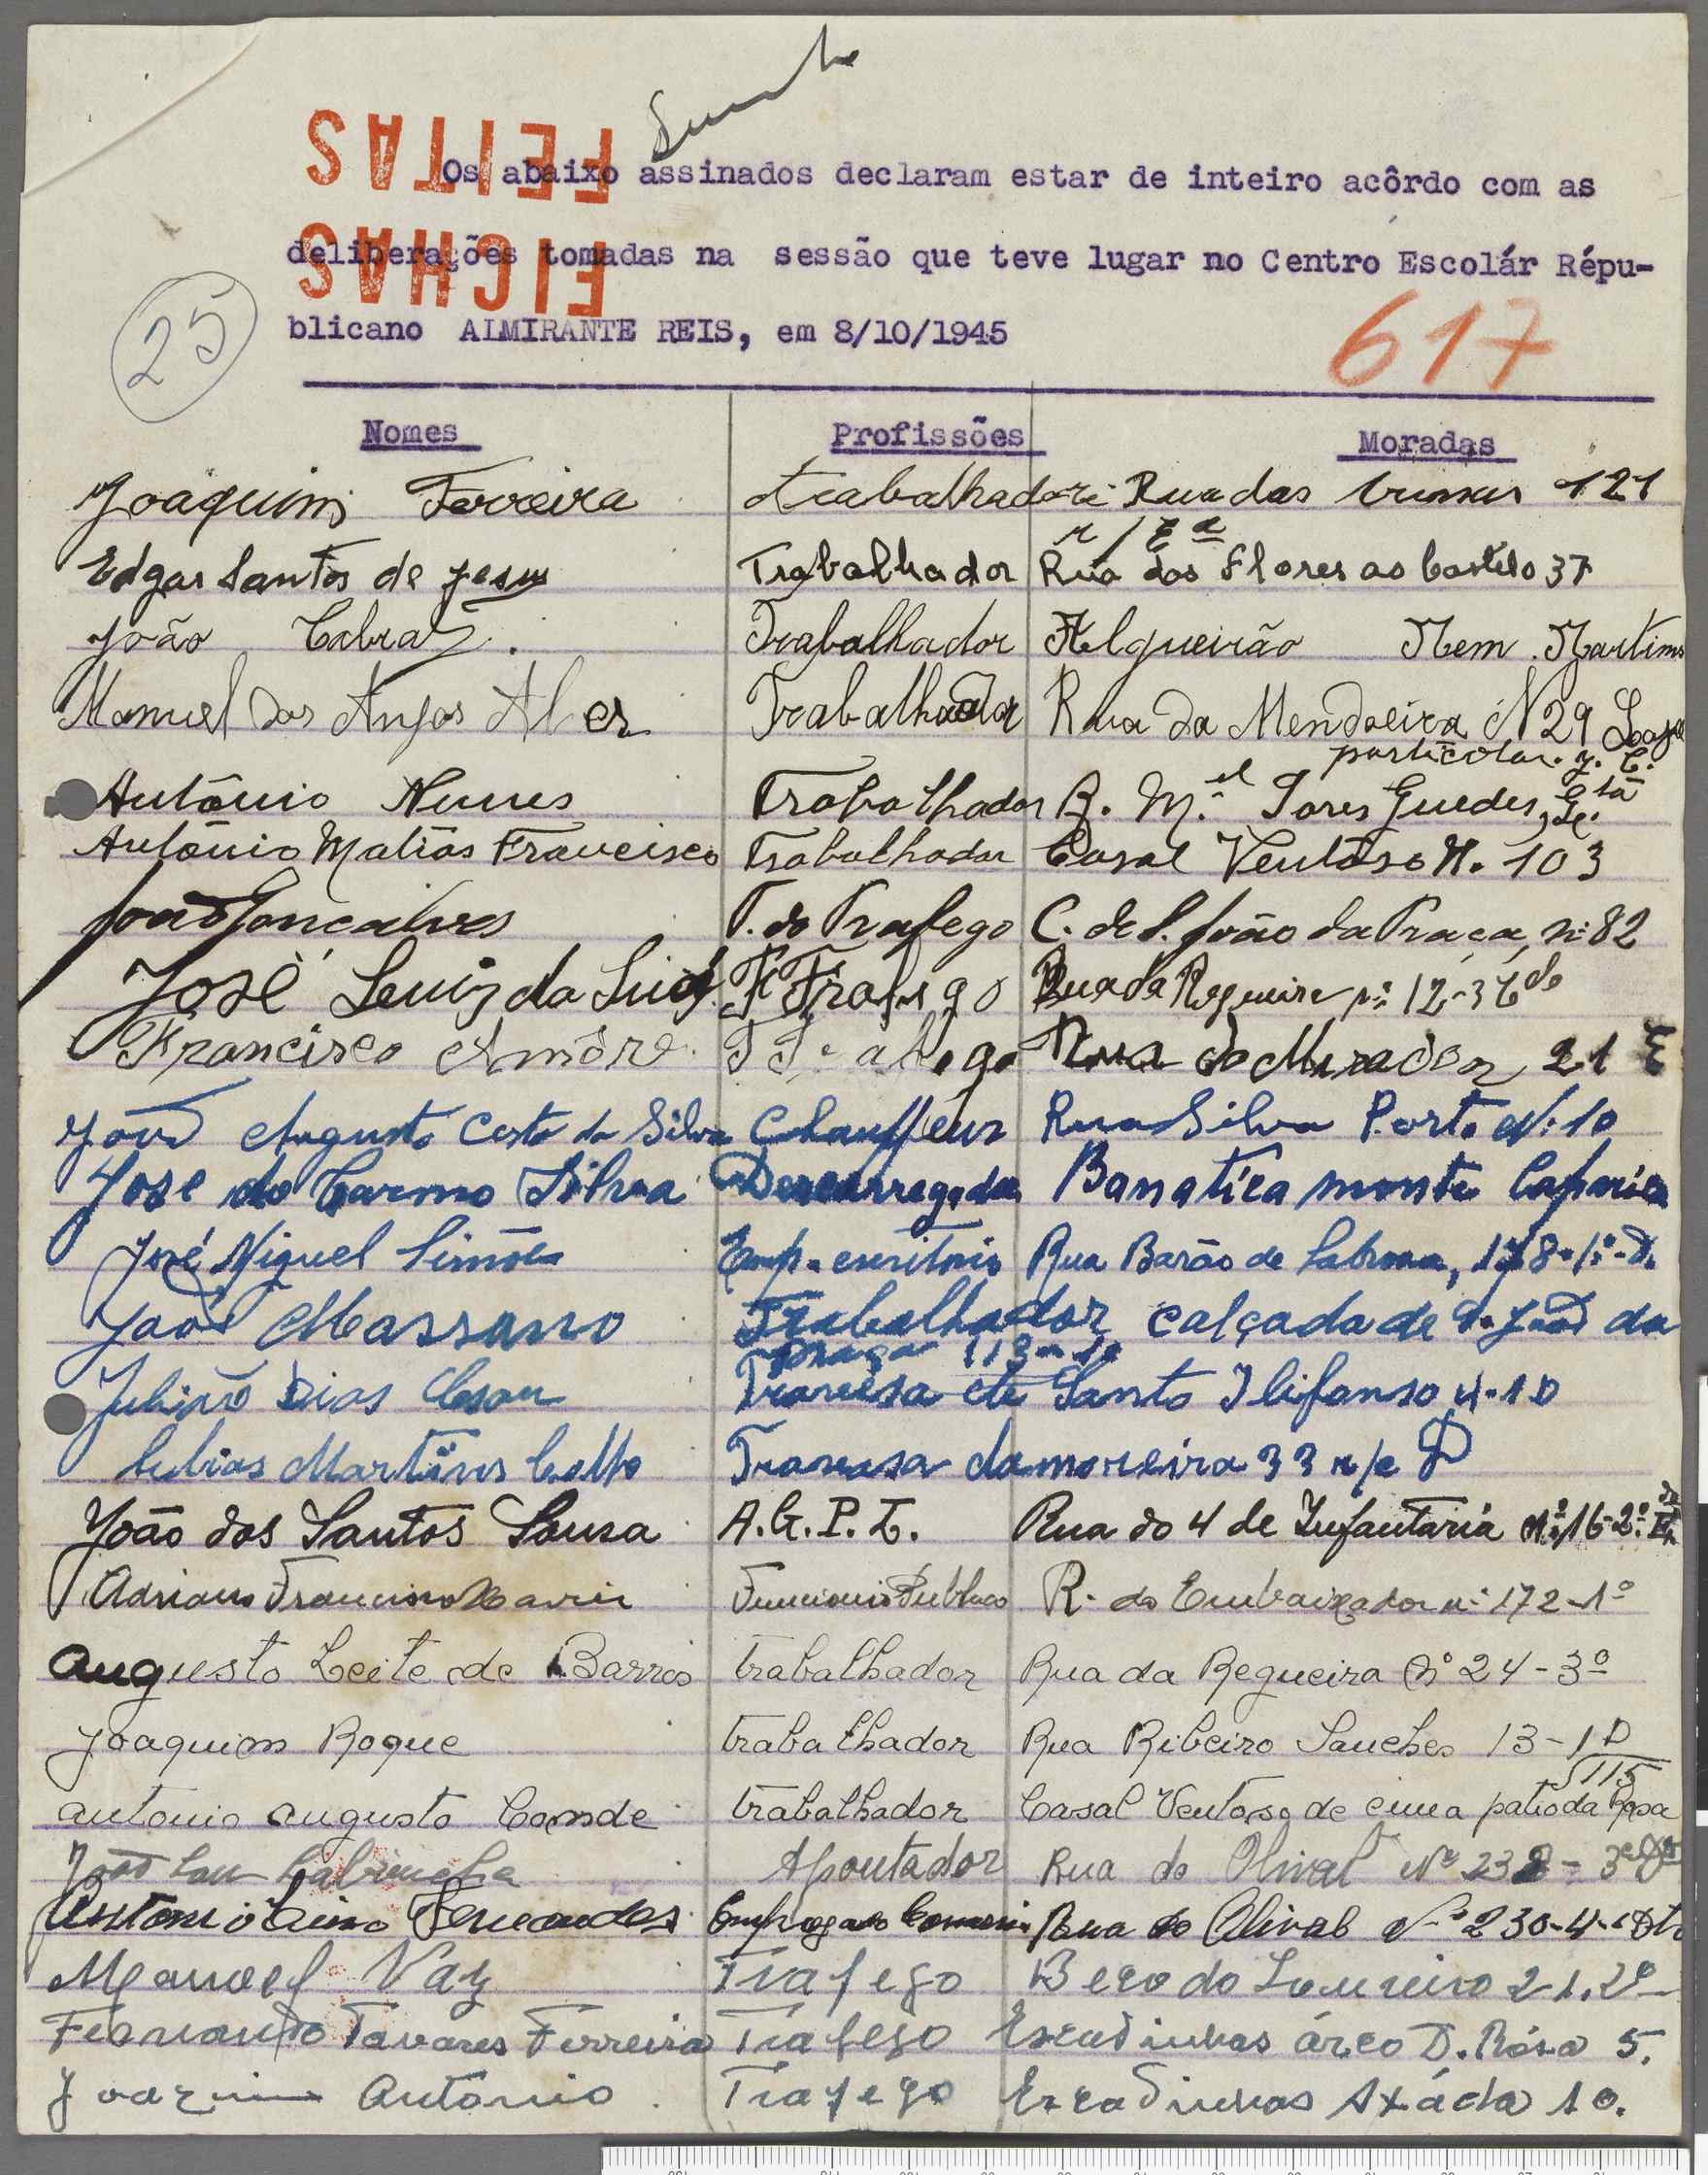 FICHAS
FEITAS
Os abaixo assinados declaram estar de inteiro acôrdo com as
deliberações tomadas na sessão que teve lugar no Centro Escolár Répu-
blicano ALMIRANTE REIS, em 8/10/1945
25
617
Nomes Profissões Moradas
Joaquim Ferreira trabalhador Rua das 121
Edgar Santos de Jesus Trabalhador Rua das Flores ao Castelo 37
João Cabral Trabalhador Algueirão Mem Martins
Manuel dos Anjos Alves Trabalhador Rua da Mendoeira N 29
particolar
António Nunes Trabalhador R. M.el Sores Guedes,
António Matias Francisco Trabalhador Casal Ventôso N. 103
João Gonçalves T. do Trafego C. de S. João da Praça, nº 82
José Luiz da T Trafego Rua da Regueira nº 12-3
Francisco T Trafego Rua do Mirador 21
João Augusto Costa da Silva Chauffeur Rua Silva Porto Nº 10
José do Carmo Silva Descarregador Banatica monte Caparica
José Miguel Simões Emp. escritorio Rua Barão de Sabrosa, 178-1º-D.
João Massano Trabalhador calçada de S. João da
praça 113
Julião Dias Travessa de Santo Ilifonso 4-1º
Martins Travessa da moreira 33 r/c D
João dos Santos Sousa A.G.P.L. Rua do 4 de Infantaria Nº 16-2º
Adriano Francisco Xavier Funcionio Publico R. do Embaixador nº 172-1º
Augusto Leite de Barros trabalhador Rua da Regueira Nº 24-3º
Joaquim Roque trabalhador Rua Ribeiro Sanches 13-1 D
115
antonio augusto Conde trabalhador Casal Ventoso de cima patio da Rosa
João Apontador Rua do Olival Nº 232-3º
Antonio Fernandes Empregado Rua do Olival Nº 230-4º Dto
Manuel Vaz Trafego Beco do Loureiro 21.2º
Fernando Tavares Ferreira Trafego Escadinhas árco D. Rósa 5.
António Trafego Escadinhas Axáda 10.